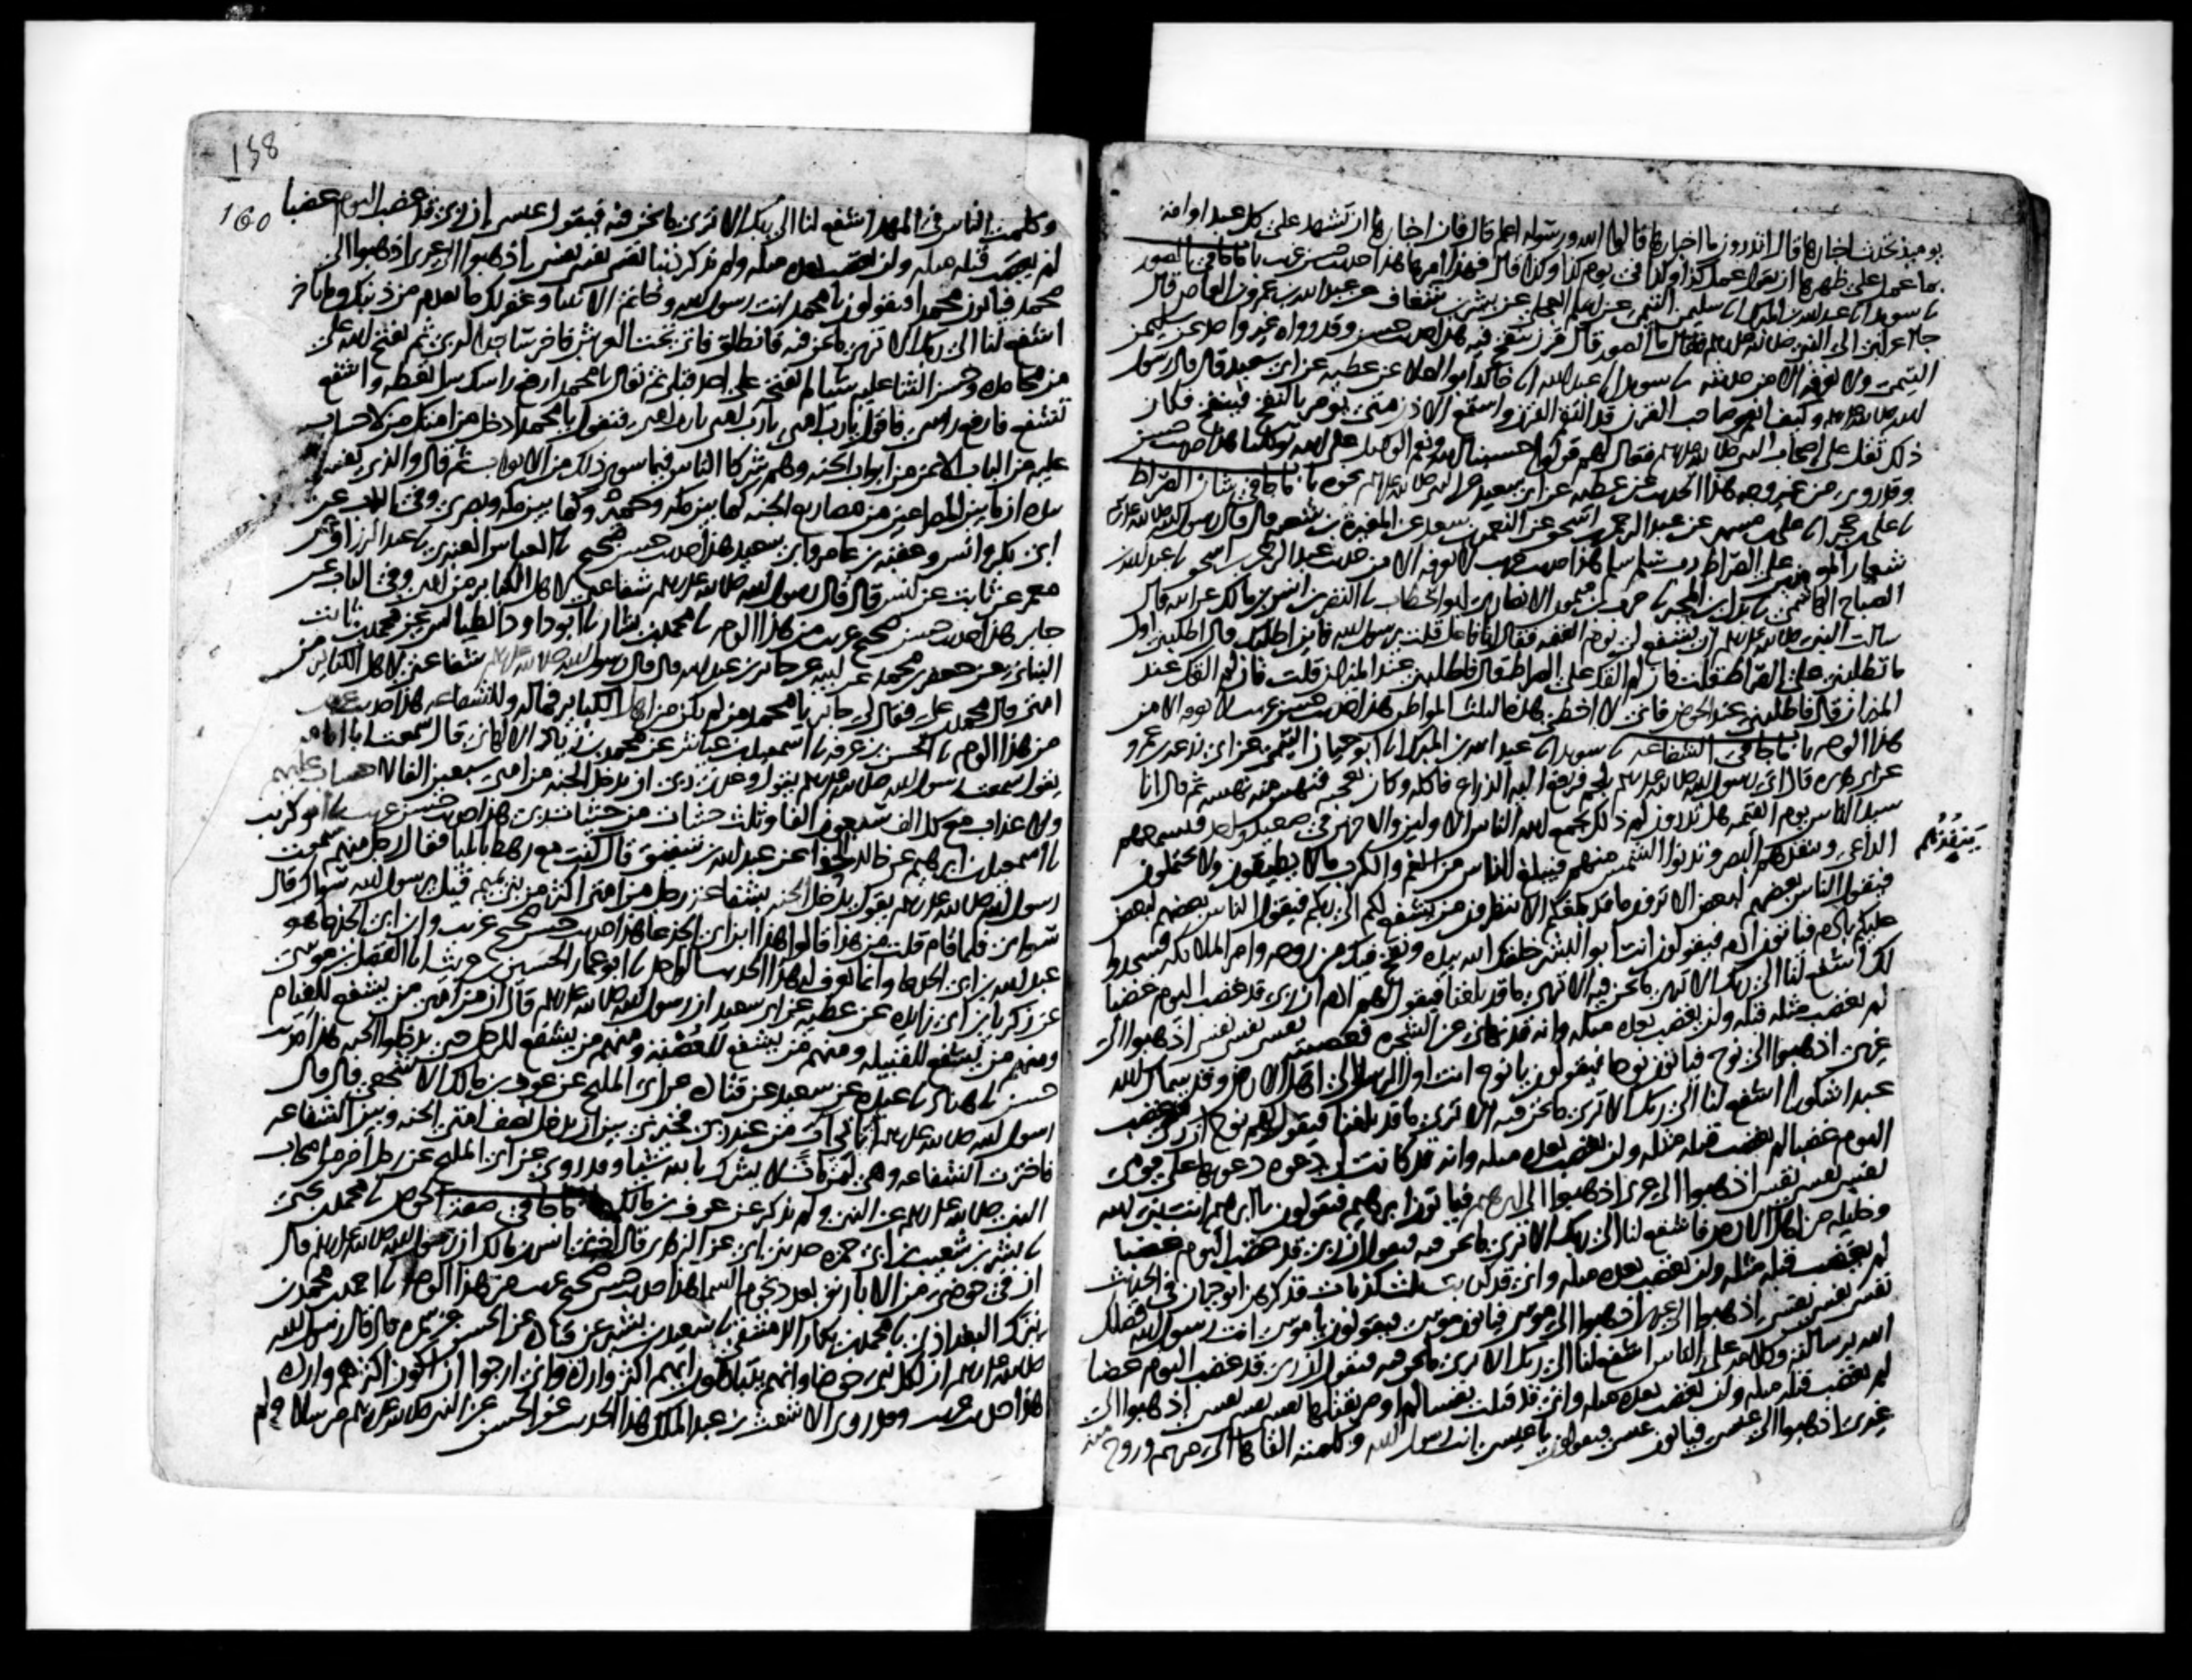 يومئذ تحدث اخبارها قال اتدرون ما اخبارها قالوا الله ورسوله اعلم قال فان اخبارها ان تشهد على كل عبد او امة
بما عمل على ظهرها ان تقول عمل كذا وكذا في يوم كذا وكذا قال فهذا امرها هذا حديث حسن غريب باب ما جا في الصور
نا سويد انا عبد الله بن المبرك انا سليمن التيمي عن اسلم العجلي عن بشر بن شغاف عن عبد الله بن عمرو بن العاص قال
جا اعرابي الى النبي صلى الله عليه وسلم فقال ما الصور قال قرن ينفخ فيه هذا حديث حسن وقد رواه غير واحد عن سليمن
التيمي ولا نعرفه الا من حديثه نا سويد انا عبد الله انا خالد ابو العلا عن عطية عن ابي سعيد قال قال رسول
الله صلى الله عليه وسلم وكيف انعم وصاحب القرن قد التقم القرن واستمع الاذن متى يومر بالنفخ فينفخ فكان
ذلك ثقل على اصحاب النبي صلى الله عليه وسلم فقال لهم قولوا حسبنا الله ونعم الوكيل على الله توكلنا هذا حديث حسن
وقد روي من غير وجه هذا الحديث عن عطية عن ابي سعيد عن النبي صلى الله عليه وسلم نحوه باب ما جا في شان الصراط
نا علي بن حجر انا علي بن مسهر عن عبد الرحمن بن اسحق عن النعمن بن سعد عن المغيرة بن شعبة قال قال رسول الله صلى الله عليه وسلم
شعار المومنين على الصراط رب سلم سلم هذا حديث غريب لا نعرفه الا من حديث عبد الرحمن بن اسحق نا عبد الله بن
الصباح الهاشمي نا بدل بن المحبر نا حرب بن ميمون الانصاري ابو الخطاب نا النضر بن انس بن مالك عن ابيه قال
سالت النبي صلى الله عليه وسلم ان يشفع لي يوم القيمة فقال انا فاعل قلت يرسول الله فاين اطلبك قال اطلبني اول
ما تطلبني على الصراط قلت فان لم القك على الصراط قال فاطلبني عند الميزان قلت فان لم القك عند
الميزان قال فاطلبني عند الحوض فاني لا اخطي هذه الثلث المواطن هذا حديث حسن غريب لا نعرفه الا من
هذا الوجه باب ما جا في الشفاعة نا سويد انا عبد الله بن المبرك انا ابو حيان التيمي عن ابي زرعة بن عمرو
عن ابي هريرة قال اتي رسول الله صلى الله عليه وسلم بلحم فرفع اليه الذراع فاكله وكان يعجبه فنهس منه نهسة ثم قال انا
سيد الناس يوم القيمة هل تدرون لم ذلك يجمع الله الناس الاولين والاخرين في صعيد واحد فيسمعهم
الداعي وينفذهم البصر وتدنوا الشمس منهم فيبلغ الناس من الغم والكرب ما لا يطيقون ولا يحتملون
يَنفُذُهُم
فيقول الناس بعضهم لبعض الا ترون ما قد بلغكم الا تنظرون من يشفع لكم الى ربكم فيقول الناس بعضهم لبعض
عليكم بادم فياتون ادم فيقولون انت ابو البشر خلقك الله بيده ونفخ فيك من روحه وامر الملائكة فسجدوا
لك اشفع لنا الى ربك الا ترى ما نحن فيه الا ترى ما قد بلغنا فيقول لهم ادم ان ربي قد غضب اليوم غضبا
لم يغضب مثله قبله ولن يغضب بعده مثله وانه قد نهاني عن الشجرة فعصيته نفسي نفسي نفسي اذهبوا الى
غيري اذهبوا الى نوح فياتون نوحا فيقولون يا نوح انت اول الرسل الى اهل الارض وقد سماك الله
عبدا شكورا اشفع لنا الى ربك الا ترى ما نحن فيه الا ترى ما قد بلغنا فيقول لهم نوح ان ربي قد غضب
اليوم غضبا لم يغضب قبله مثله ولن يغضب بعده مثله وانه قد كانت لي دعوة دعوتها على قومي
نفسي نفسي نفسي اذهبوا الى غيري اذهبوا الى ابرهيم فياتون ابرهيم فيقولون يا ابرهيم انت نبي الله
وخليله من اهل الارض فاشفع لنا الى ربك الا ترى ما نحن فيه فيقول ان ربي قد غضب اليوم غضبا
لم يغضب قبله مثله ولن يغضب بعده مثله واني قد كذبت ثلث كذبات فذكرهن ابو حيان في الحديث
نفسي نفسي نفسي اذهبوا الى غيري اذهبوا الى موسى فياتون موسى فيقولون يا موسى انت رسول الله فضلك
الله برسالته وكلامه على الناس اشفع لنا الى ربك الا ترى ما نحن فيه فيقول ان ربي قد غضب اليوم غضبا
لم يغضب قبله مثله ولن يغضب بعده مثله واني قد قتلت نفسا لم اومر بقتلها نفسي نفسي نفسي اذهبوا الى
غيري اذهبوا الى عيسى فياتون عيسى فيقولون يا عيسى انت رسول الله وكلمته القاها الى مريم وروح منه
158
160
وكلمت الناس في المهد اشفع لنا الى ربك الا ترى ما نحن فيه فيقول عيسى ان ربي قد غضب اليوم غضبا
لم يغضب قبله مثله ولن يغضب بعده مثله ولم يذكر ذنبا نفسي نفسي نفسي اذهبوا الى غيري اذهبوا الى
محمد فياتون محمدا فيقولون يا محمد انت رسول الله وخاتم الانبيا وغفر لك ما تقدم من ذنبك وما تاخر
اشفع لنا الى ربك الا ترى ما نحن فيه فانطلق فاتي تحت العرش فاخر ساجدا لربي ثم يفتح الله علي
من محامده وحسن الثنا عليه شيا لم يفتحه على احد قبلي ثم يقال يا محمد ارفع راسك سل تعطه واشفع
تشفع فارفع راسي فاقول يا رب امتي يا رب امتي يا رب امتي فيقول يا محمد ادخل من امتك من لا حساب
عليه من الباب الايمن من ابواب الجنة وهم شركا الناس فيما سوى ذلك من الابواب ثم قال والذي نفسي
بيده ان ما بين المصراعين من مصاريع الجنة كما بين مكة وهجر وكما بين مكة وبصرى وفي الباب عن
ابي بكر وانس وعقبة بن عامر وابي سعيد هذا حديث حسن صحيح نا العباس العنبري نا عبد الرزاق عن
معمر عن ثابت عن انس قال قال رسول الله صلى الله عليه وسلم شفاعتي لاهل الكبائر من امتي وفي الباب عن
جابر هذا حديث حسن صحيح غريب من هذا الوجه نا محمد بن بشار نا ابو داود الطيالسي عن محمد بن ثابت
البناني عن جعفر بن محمد عن ابيه عن جابر بن عبد الله قال قال رسول الله صلى الله عليه وسلم شفاعتي لاهل الكبائر من
امتي قال محمد بن علي فقال لي جابر يا محمد من لم يكن من اهل الكبائر فماله وللشفاعة هذا حديث غريب
من هذا الوجه نا الحسن بن عرفة نا اسمعيل بن عياش عن محمد بن زياد الالهاني قال سمعت ابا امامة
يقول سمعت رسول الله صلى الله عليه وسلم يقول وعدني ربي ان يدخل الجنة من امتي سبعين الفا لا حساب عليهم
ولا عذاب مع كل الف سبعون الفا وثلث حثيات من حثيات ربي هذا حديث حسن غريب نا ابو كريب
نا اسمعيل بن ابرهيم عن خالد الحذا عن عبد الله بن شقيق قال كنت مع رهط بايليا فقال رجل منهم سمعت
رسول الله صلى الله عليه وسلم يقول يدخل الجنة بشفاعة رجل من امتي اكثر من بني تميم قيل يرسول الله سواك قال
سواي فلما قام قلت من هذا قالوا هذا ابن ابي الجذعا هذا حديث حسن صحيح غريب وابن ابي الجذعا هو
عبد الله بن ابي الجذعا وانما نعرف له هذا الحديث الواحد نا ابو عمار الحسين بن حريث انا الفضل بن موسى
عن زكريا بن ابي زايدة عن عطية عن ابي سعيد ان رسول الله صلى الله عليه وسلم قال ان من امتي من يشفع للفيام
ومنهم من يشفع للقبيلة ومنهم من يشفع للعُصْبة ومنهم من يشفع للرجل حتى يدخلوا الجنة هذا حديث
حسن نا هناد نا عبدة عن سعيد عن قتادة عن ابي المليح عن عوف بن مالك الاشجعي قال قال
رسول الله صلى الله عليه وسلم اتاني ات من عند ربي فخيرني بين ان يدخل نصف امتي الجنة وبين الشفاعة
فاخترت الشفاعة وهي لمن مات لا يشرك بالله شيا وقد روي عن ابي المليح عن رجل اخر من اصحاب
النبي صلى الله عليه وسلم عن النبي ولم يذكر عن عوف بن مالك باب ما جا في صفة الحوض نا محمد بن يحيى
نا بشر بن شعيب بن ابي حمزة حدثني ابي عن الزهري قال اخبرني انس بن مالك ان رسول الله صلى الله عليه وسلم قال
ان في حوضي من الاباريق بعدد نجوم السما هذا حديث حسن صحيح غريب من هذا الوجه نا احمد بن محمد بن
نيزك البغدادي نا محمد بن بكار الدمشقي نا سعيد بن بشير عن قتادة عن الحسن عن سمرة قال قال رسول الله
صلى الله عليه وسلم ان لكل نبي حوضا وانهم يتباهون ايهم اكثر واردة واني ارجوا ان اكون اكثرهم واردة
هذا حديث غريب وقد روى الاشعث بن عبد الملك هذا الحديث عن الحسن عن النبي صلى الله عليه وسلم مرسلا ولم